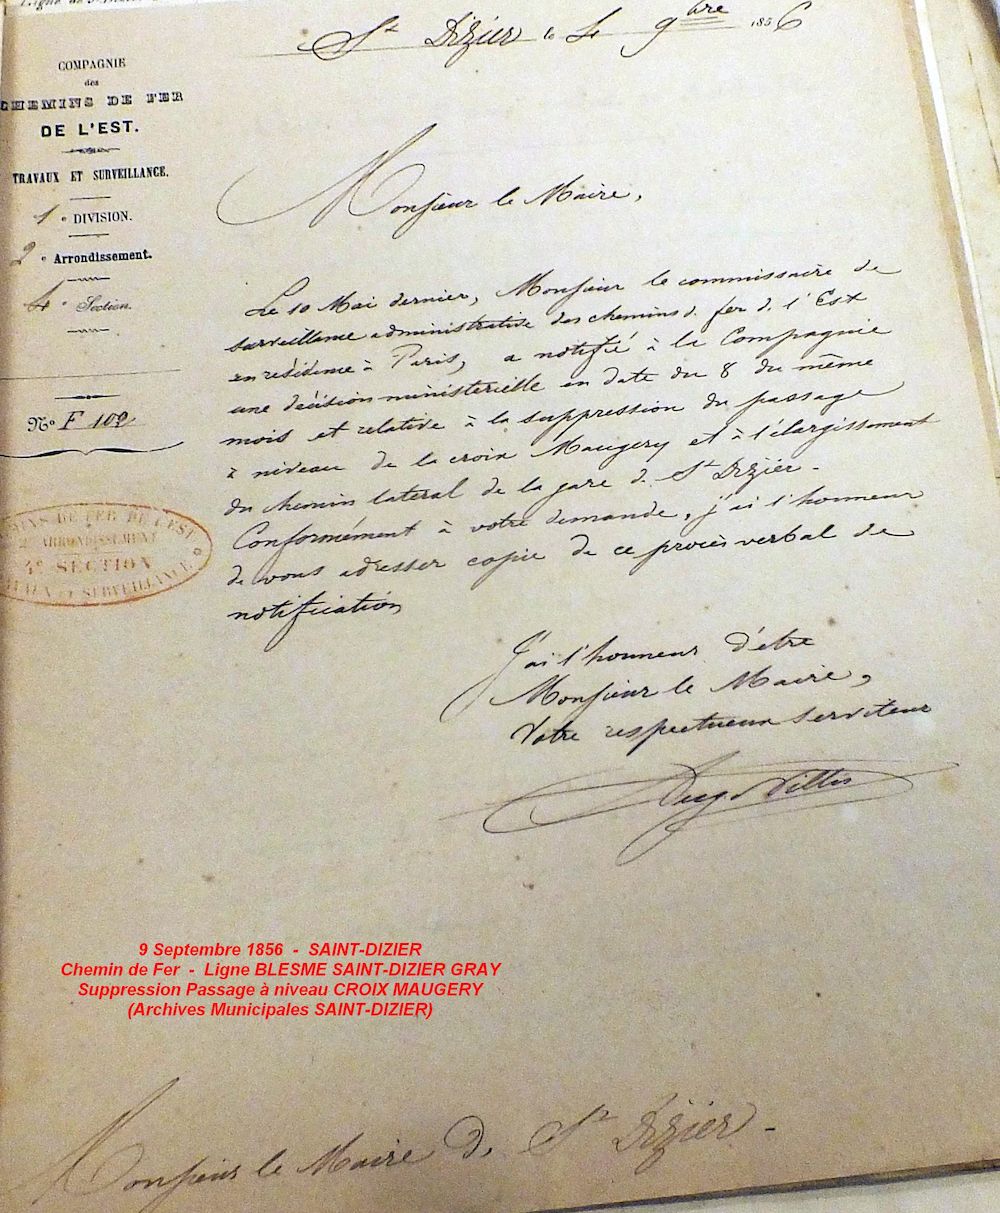 St Dizier le 4 9bre 1856
COMPAGNIE
des
CHEMINS DE FER
DE L'EST.
TRAVAUX ET SURVEILLANCE.
1e DIVISION.
2e Arrondissement.
4e Section.
No F 109
CHEMINS DE FER DE L'EST
2e ARRONDISSEMENT
4e SECTION
TRAVAUX ET SURVEILLANCE
Monsieur le Maire,
Le 10 Mai dernier, Monsieur le commissaire de
surveillance administrative des chemins de fer de l'Est
en résidence à Paris, a notifié à la Compagnie
une décision ministerielle en date du 8 du même
mois et relative à la suppression du passage
à niveau de la croix Maugery et à l'élargissement
du chemin lateral de la gare de St Dizier.
Conformément à votre demande, j'ai l'honneur
de vous adresser copie de ce procès verbal de
notification
J'ai l'honneur d'être
Monsieur le Maire,
Votre respectueux serviteur
9 Septembre 1856 - SAINT-DIZIER
Chemin de Fer - Ligne BLESME SAINT-DIZIER GRAY
Suppression Passage à niveau CROIX MAUGERY
(Archives Municipales SAINT-DIZIER)
Monsieur le Maire de St Dizier -